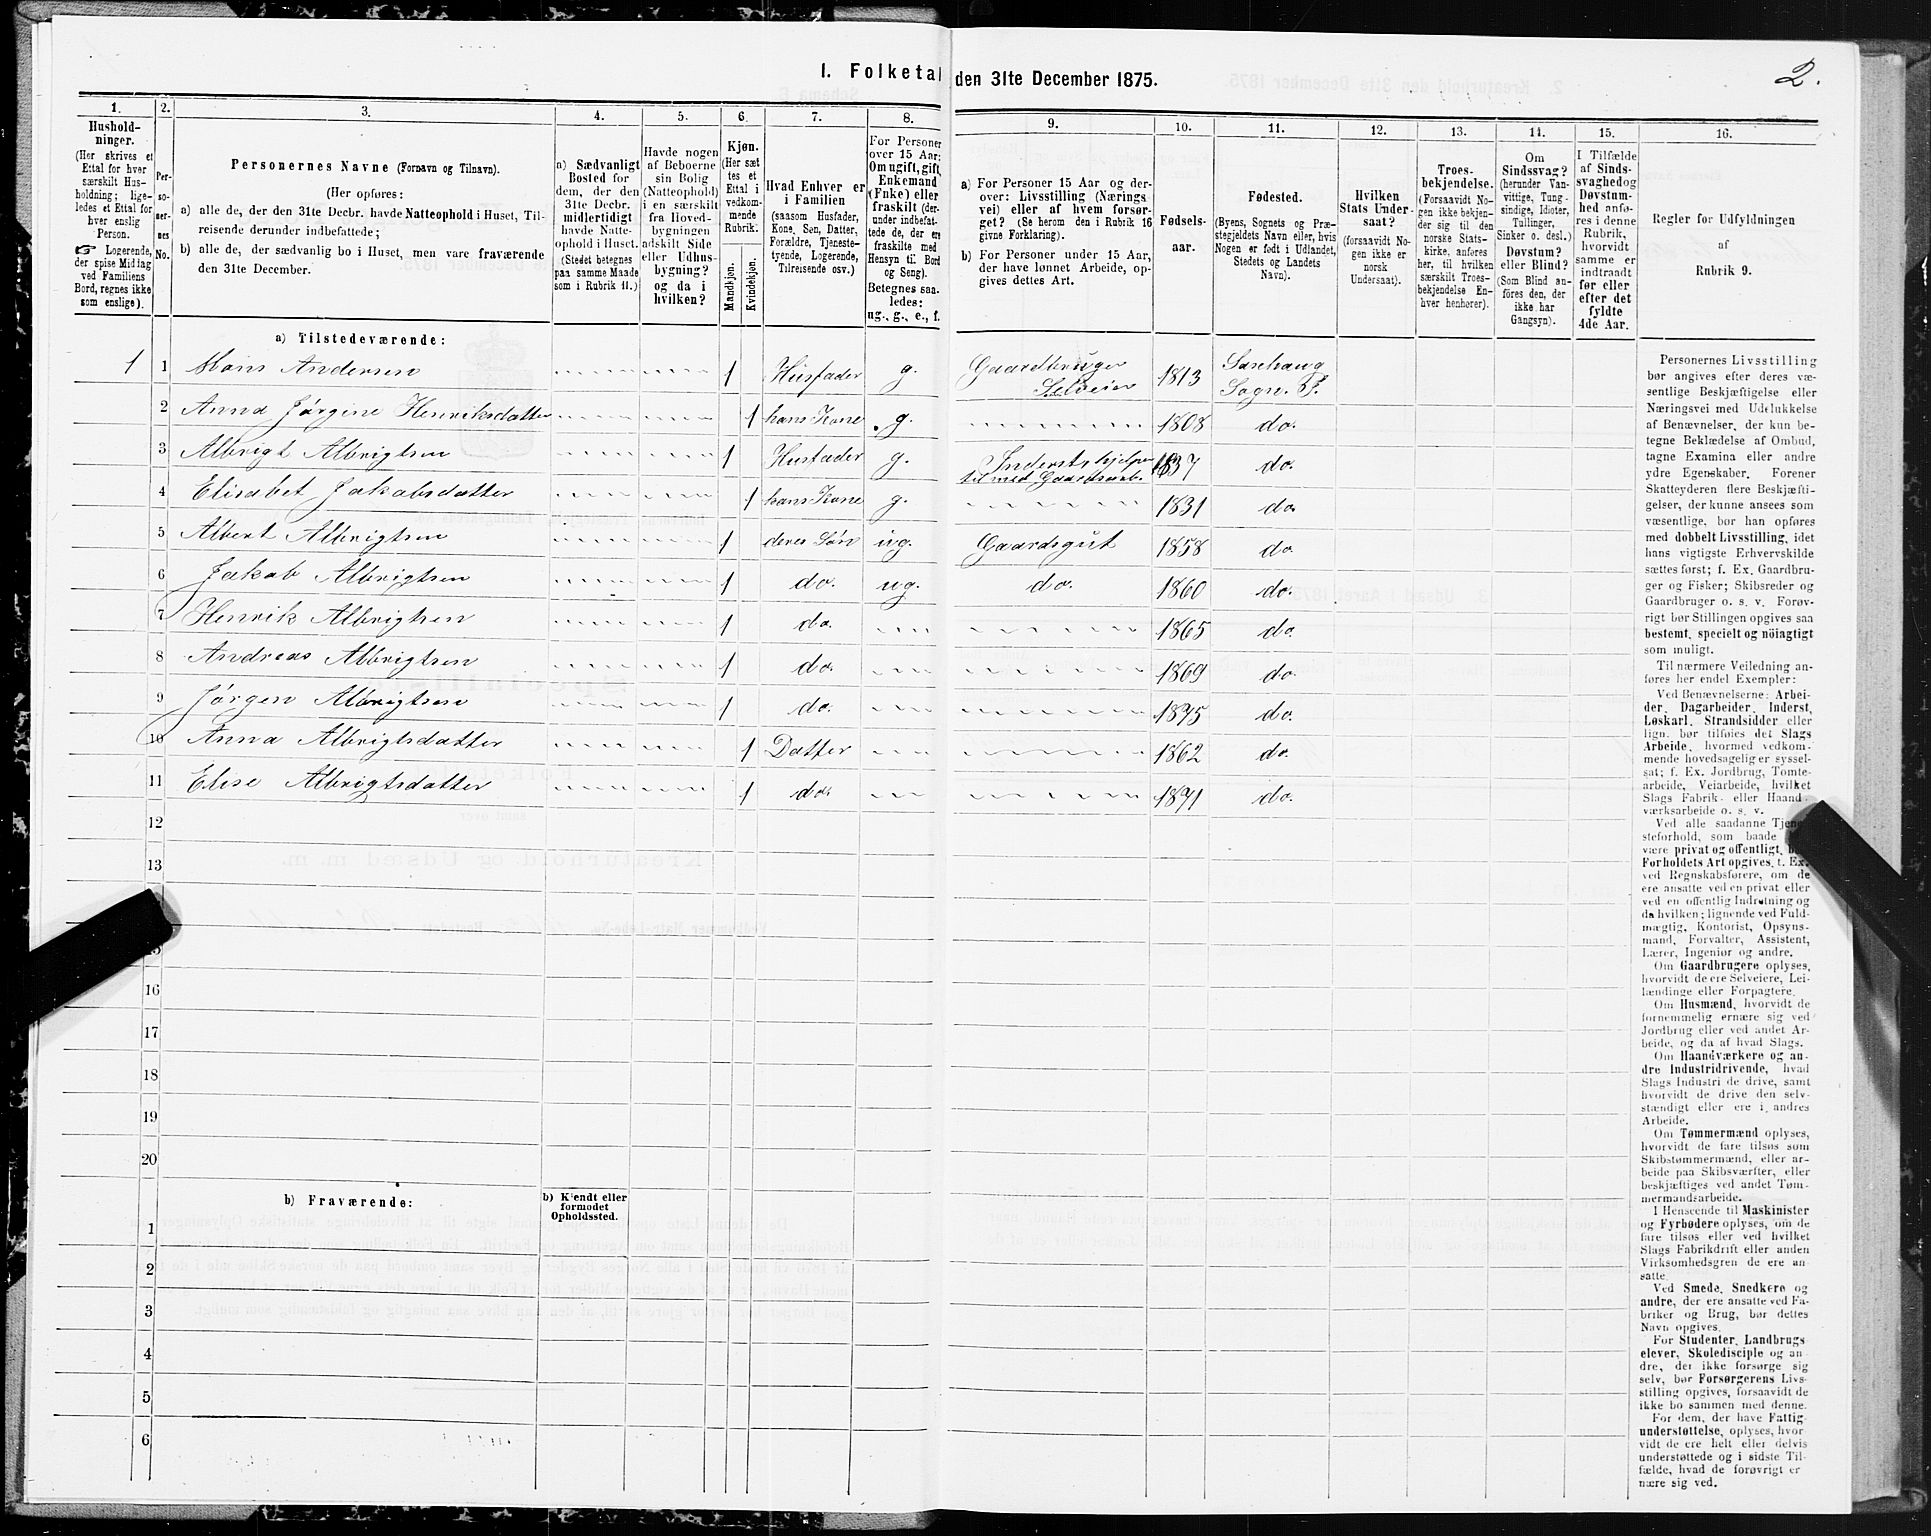 I. Folketal den 31te December 1875.
2.
1.
Husholdninger.
(Her skrives et
Ettal for hver
særskilt Hus-
holdning; lige-
ledes et Ettal for
hver enslig
Person.
☞ Logerende,
der spise Middag
ved Familiens
Bord, regnes ikke
som enslige).
2.
Per-
soner-
nes
No.
3.
Personernes Navne (Fornavn og Tilnavn).
(Her opføres:
a) alle de, der den 31te Decbr. havde Natteophold i Huset, Til-
reisende derunder indbefattede;
b) alle de, der sædvanlig bo i Huset, men vare fraværende
den 31te December.
4.
a) Sædvanligt
Bosted for
dem, der den
31te Decbr.
midlertidigt
havde Natte-
ophold i Huset.
(Stedet betegnes
paa samme Maade
som i Rubrik 11.)
5.
Havde nogen
af Beboerne
sin Bolig
(Natteophold)
i en særskilt
fra Hoved-
bygningen
adskilt Side
eller Udhus-
bygning?
og da i
hvilken?
6.
Kjøn.
(Her sæt-
tes et
Ettal i
vedkom-
mende
Rubrik.
Mandkjøn.
Kvindekjøn.
7.
Hvad Enhver er
i Familien
(saasom Husfader,
Kone, Søn, Datter,
Forældre, Tjeneste-
tyende, Logerende,
Tilreisende osv.)
8.
For Personer
over 15 Aar:
Om ugift, gift,
Enkemand
(Enke) eller
fraskilt (der-
under indbefat-
tede de, der ere
fraskilte med
Hensyn til Bord
og Seng).
Betegnes saa-
ledes:
ug., g., e., f.
9.
a) For Personer 15 Aar og der-
over: Livsstilling (Nærings-
vei) eller af hvem forsør-
get? (Se herom den i Rubrik 16
givne Forklaring).
b) For Personer under 15 Aar,
der have lønnet Arbeide, op-
gives dettes Art.
10.
Fødsels-
aar.
11.
Fødested.
(Byens, Sognets og Præ-
stegjeldets Navn eller, hvis
Nogen er født i Udlandet,
Stedets og Landets
Navn).
12.
Hvilken
Stats Under-
saat?
(forsaavidt No-
gen ikke er
norsk
Undersaat).
13.
Troes-
bekjendelse.
(Forsaavidt No-
gen ikke bekjen-
der sig til den
norske Stats-
kirke, anføres
her, til hvilken
særskilt Troes-
bekjendelse En-
hver henhører).
14.
Om
Sindssvag?
(herunder Van-
vittige, Tung-
sindige, Idioter,
Tullinger,
Sinker o. desl.)
Døvstum?
eller Blind?
(Som Blind an-
føres den, der
ikke har
Gangsyn).
15.
I Tilfælde
af Sinds-
svaghed og
Døvstum-
hed anfø-
res i denne
Rubrik,
hvorvidt
samme er
indtraadt
før eller
efter det
fyldte
4de Aar.
16.
Regler for Udfyldningen
af
Rubrik 9.
a) Tilstedeværende:
1 1 Hans Andersen 1 Husfader g. Gaardbruger Selveier 1813 Sogn. P.
2 Anna Jørgine Henriksdatter 1 hans Kone g. 1808 do.
3 Albrigt Albrigtsen 1 Husfader g. 1837 do.
4 Elisabet Jakobsdatter 1 hans Kone g. 1831 do.
5 Albert Albrigtsen 1 deres Søn ug. Gaardsgut 1858 do.
6 Jakob Albrigtsen 1 do. ug. do. 1860 do.
7 Henrik Albrigtsen 1 do. 1865 do.
8 Andreas Albrigtsen 1 do. 1869 do.
9 Jørgen Albrigtsen 1 do. 1875 do.
10 Anna Albrigtsdatter 1 Datter 1862 do.
11 Elise Albrigtsdatter 1 do. 1871 do.
12
13
15
16
17
18
19
20
b) Fraværende:
b) Kjendt eller
formodet
Opholdssted.
1
2
3
4
5
6
Personernes Livsstilling
bør angives efter deres væ-
sentlige Beskjæftigelse eller
Næringsvei med Udelukkelse
af Benævnelser, der kun be-
tegne Beklædelse af Ombud,
tagne Examina eller andre
ydre Egenskaber. Forener
Skatteyderen flere Beskjæfti-
gelser, der kunne ansees som
væsentlige, bør han opføres
med dobbelt Livsstilling, idet
hans vigtigste Erhvervskilde
sættes først; f. Ex. Gaardbru-
ger og Fisker; Skibsreder og
Gaardbruger o. s. v. Forøv-
rigt bør Stillingen opgives saa
bestemt, specielt og nöiagtigt
som muligt.
Til nærmere Veiledning an-
føres her endel Exempler:
Ved Benævnelserne: Arbei-
der, Dagarbeider, Inderst,
Løskarl, Strandsidder eller
lign. bør tilføies det Slags
Arbeide, hvormed vedkom-
mende hovedsagelig er syssel-
sat; f. Ex. Jordbrug, Tomte-
arbeide, Veiarbeide, hvilket
Slags Fabrik- eller Haand-
værksarbeide o. s. v.
Ved alle saadanne Tjene-
steforhold, som baade
være privat og offentligt,
Forholdets Art opgives, t. Ex.
ved Regnskabsførere, om de
ere ansatte ved en privat eller
ved en offentlig Indretning og
da hvilken; lignende ved Fuld-
mægtig, Kontorist, Opsyns-
mand, Forvalter, Assistent,
Lærer, Ingeniør og andre.
Om Gaardbrugere oplyses,
hvorvidt de ere Selveiere, Lei-
lændinge eller Forpagtere.
Om Husmænd, hvorvidt de
fornemmelig ernære sig ved
Jordbrug eller ved andet Ar-
beide, og da af hvad Slags.
Om Haandværkere og an-
dre Industridrivende, hvad
Slags Industri de drive, samt
hvorvidt de drive den selv-
stændigt eller ere i andres
Arbeide.
Om Tømmermænd oplyses,
hvorvidt de fare tilsøs som
Skibstømmermænd, eller ar-
beide paa Skibsværfter, eller
beskjæftiges ved andet Tøm-
mermandsarbeide.
I Henseende til Maskinister
og Fyrbødere oplyses, om de
fare tilsøs eller ved hvilket
Slags Fabrikdrift eller anden
Virksomhedsgren de ere an-
satte.
Ved Smede, Snedkere og
andre, der ere ansatte ved Fa-
briker og Brug, bør dettes
Navn opgives.
For Studenter, Landbrugs-
elever, Skoledisciple og an-
dre, der ikke forsørge sig
selv, bør Forsørgerens Livs-
stilling opgives, forsaavidt de
ikke bo sammen med denne.
For dem, der have Fattig-
understøttelse, oplyses, hvor-
vidt de ere helt eller delvis
understøttede og i sidste Til-
fælde, hvad de forøvrigt er-
nære sig ved.